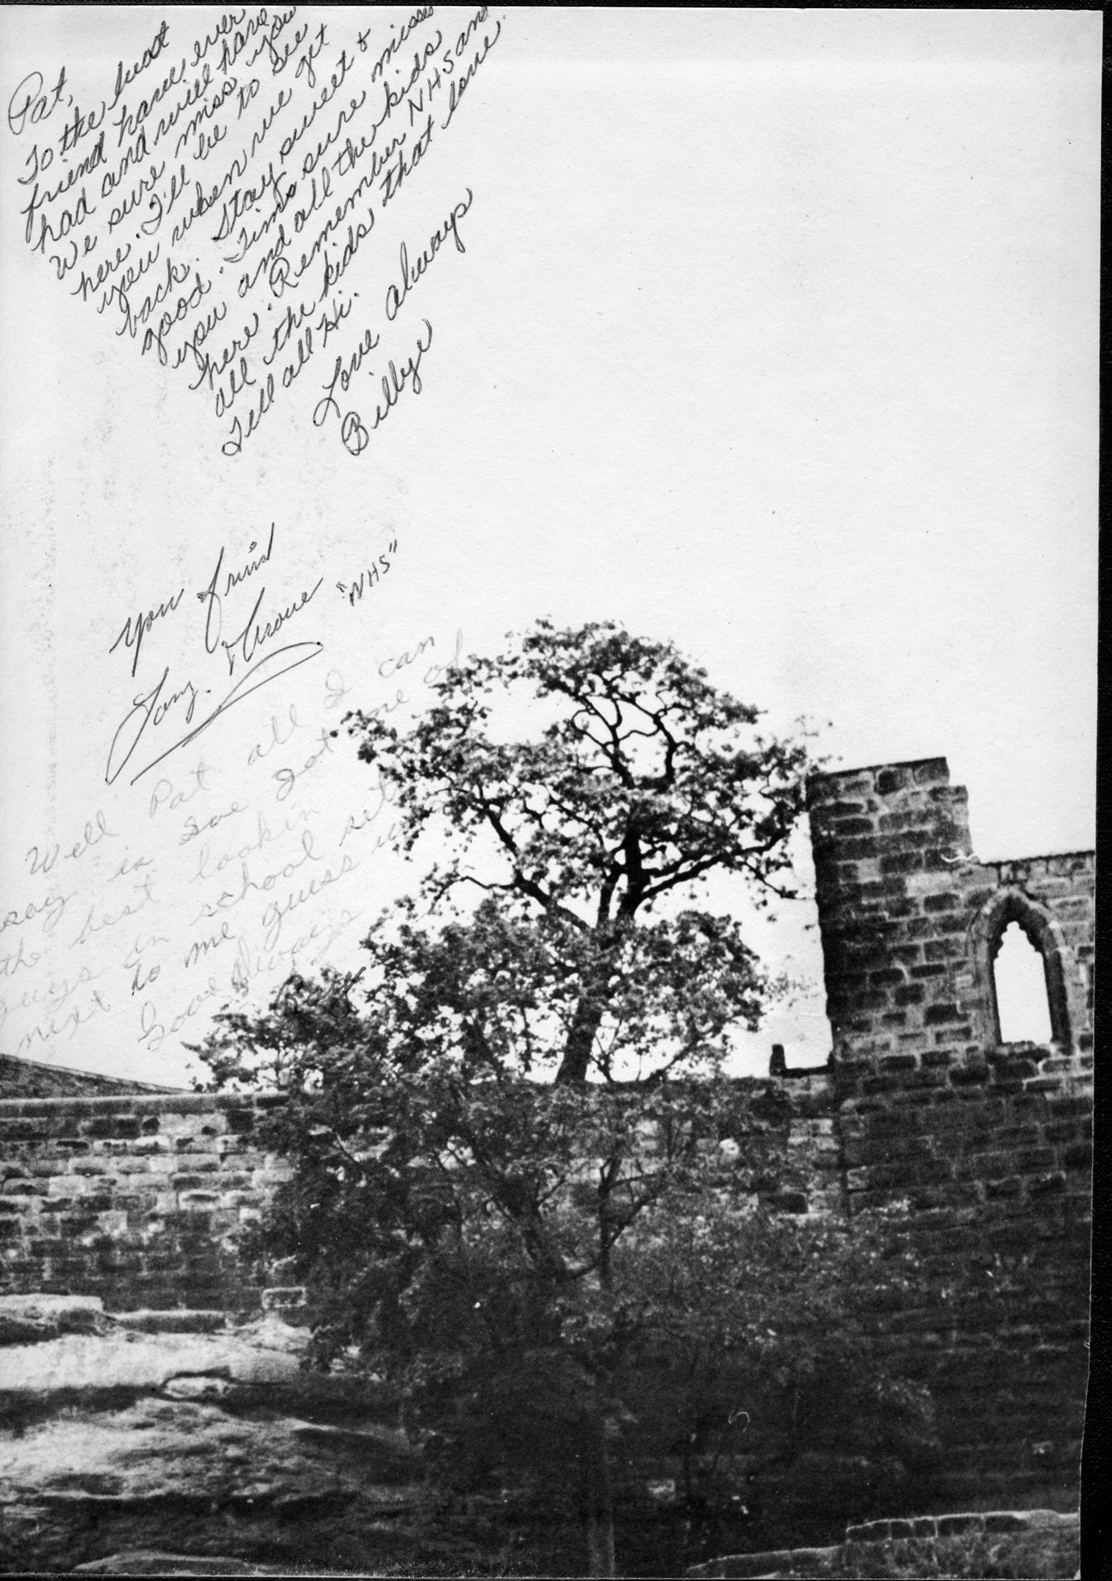 Pat,
To the best
friend have ever
had and will have
We sure miss you
here. I'll be to see
you when we get
back. Stay sweet &
good. Timp sure misses
you and all the kids
here. Remember NHS and
all the kids that love
Tell all Hi.
Love always
Billye
Your friend
Tony "NHS"
Well Pat all I can
say is Ive got one of
the best lookin
guys in school sit
next to me guess who
Love Always